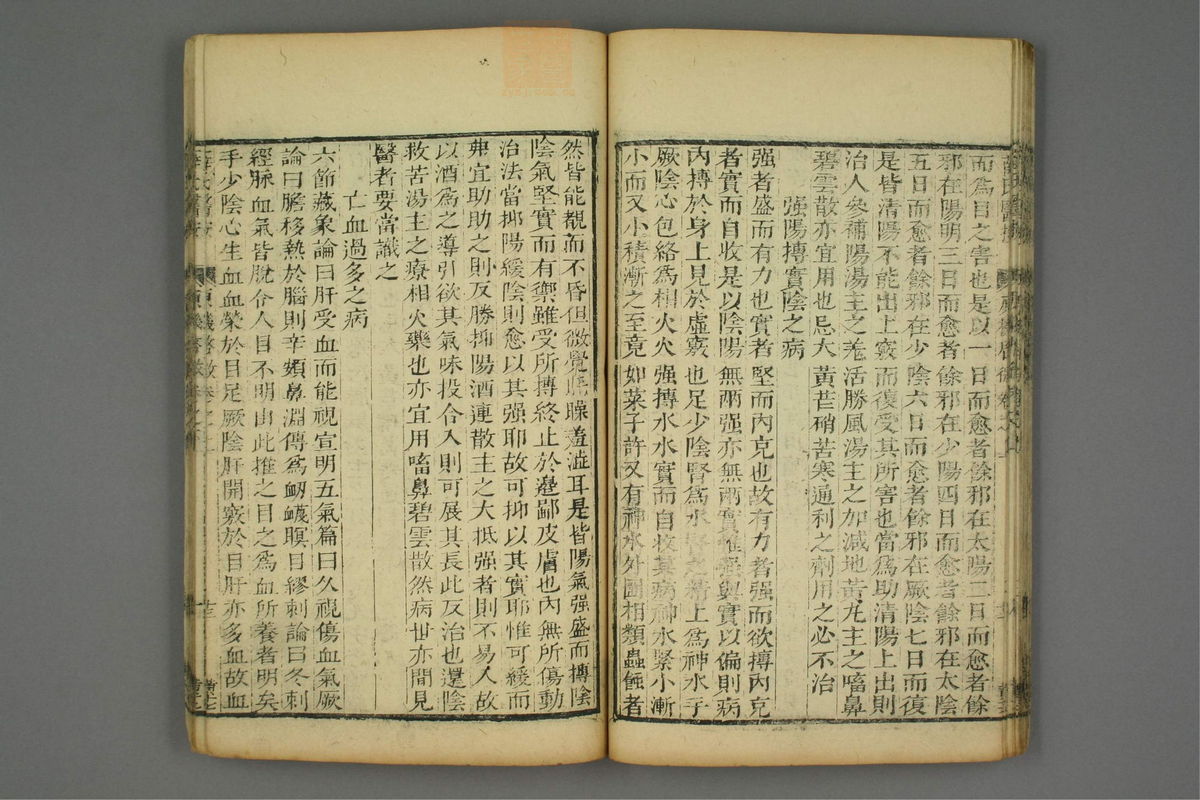 而爲目之害也是以一日而愈者餘邪在太陽二日而愈者餘
邪在陽明三日而愈者餘邪在少陽四日而愈者餘邪在太陰
五日而愈者餘邪在少陰六日而愈者餘邪在厥陰七日而復
是皆清陽不能出上竅而復受其所害也當爲助清陽上出則
治人參補陽湯主之羗活勝風湯主之加減地黃丸主之㗜鼻
碧雲散亦宜用也忌大黃芒硝苦寒通利之劑用之必不治
强陽搏實陰之病
强者盛而有力也實者堅而内充也故有力者强而欲搏内充
者實而自收是以陰陽無兩强亦無兩實惟强與實以偏則病
内搏於身上見於虚竅也足少陰腎爲水腎之精上爲神水手
厥陰心包絡爲相火火强搏水水實而自收其病神水緊小漸
小而又小積漸之至竟如菜子許又有神水外圍相類蟲蝕者
然皆能覩而不昏但微覺𥇀矂羞澁耳是皆陽氣强盛而搏陰
陰氣堅實而有禦雖受所搏終止於邊鄙皮膚也内無所傷動
治法當抑陽緩陰則愈以其强耶故可抑以其實耶惟可緩而
弗宜助助之則反勝抑陽酒連散主之大抵强者則不易入故
以酒爲之導引欲其氣味投合入則可展其長此反治也還陰
救苦湯主之療相火藥也亦宜用㗜鼻碧雲散然病世亦間見
醫者要當識之
亡血過多之病
六節藏象論曰肝受血而能視宣明五氣篇曰久視傷血氣厥
論曰膽移熱於腦則辛頞鼻淵傳爲衂衊瞑目繆刺論曰冬刺
經脉血氣皆脫令人目不明由此推之目之爲血所養者明矣
手少陰心生血血榮於目足厥陰肝開竅於目肝亦多血故血